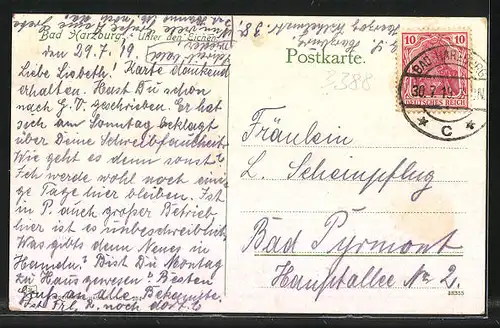 Bad Harzburg. Unter den Eichen
den 29.7.19.
Schreib bald
wieder
Liebe Lisbeth! Karte dankend
erhalten. Hast Du schon
nach G. V. geschrieben. Er hat
sich am Sonntag beklagt
über Deine Schreibfaulheit.
Wie geht es denn sonst?
Ich werde wohl noch eini-
ge Tage hier bleiben. Ist
in P. auch großer Betrieb,
hier ist es unbeschreiblich.
Was gibts denn Neues in
Hameln? Bist Du Montag
zu Haus gewesen? Besten
Gruß an alle Bekannte.
Ist Frl. D. noch dort?
Postkarte.
3388
Fräulein
L. Scheinpflug
Bad Pyrmont
Hauptallee No 2.
10 10
DEUTSCHES REICH
BAD HARZBURG
30.7.19
* C *